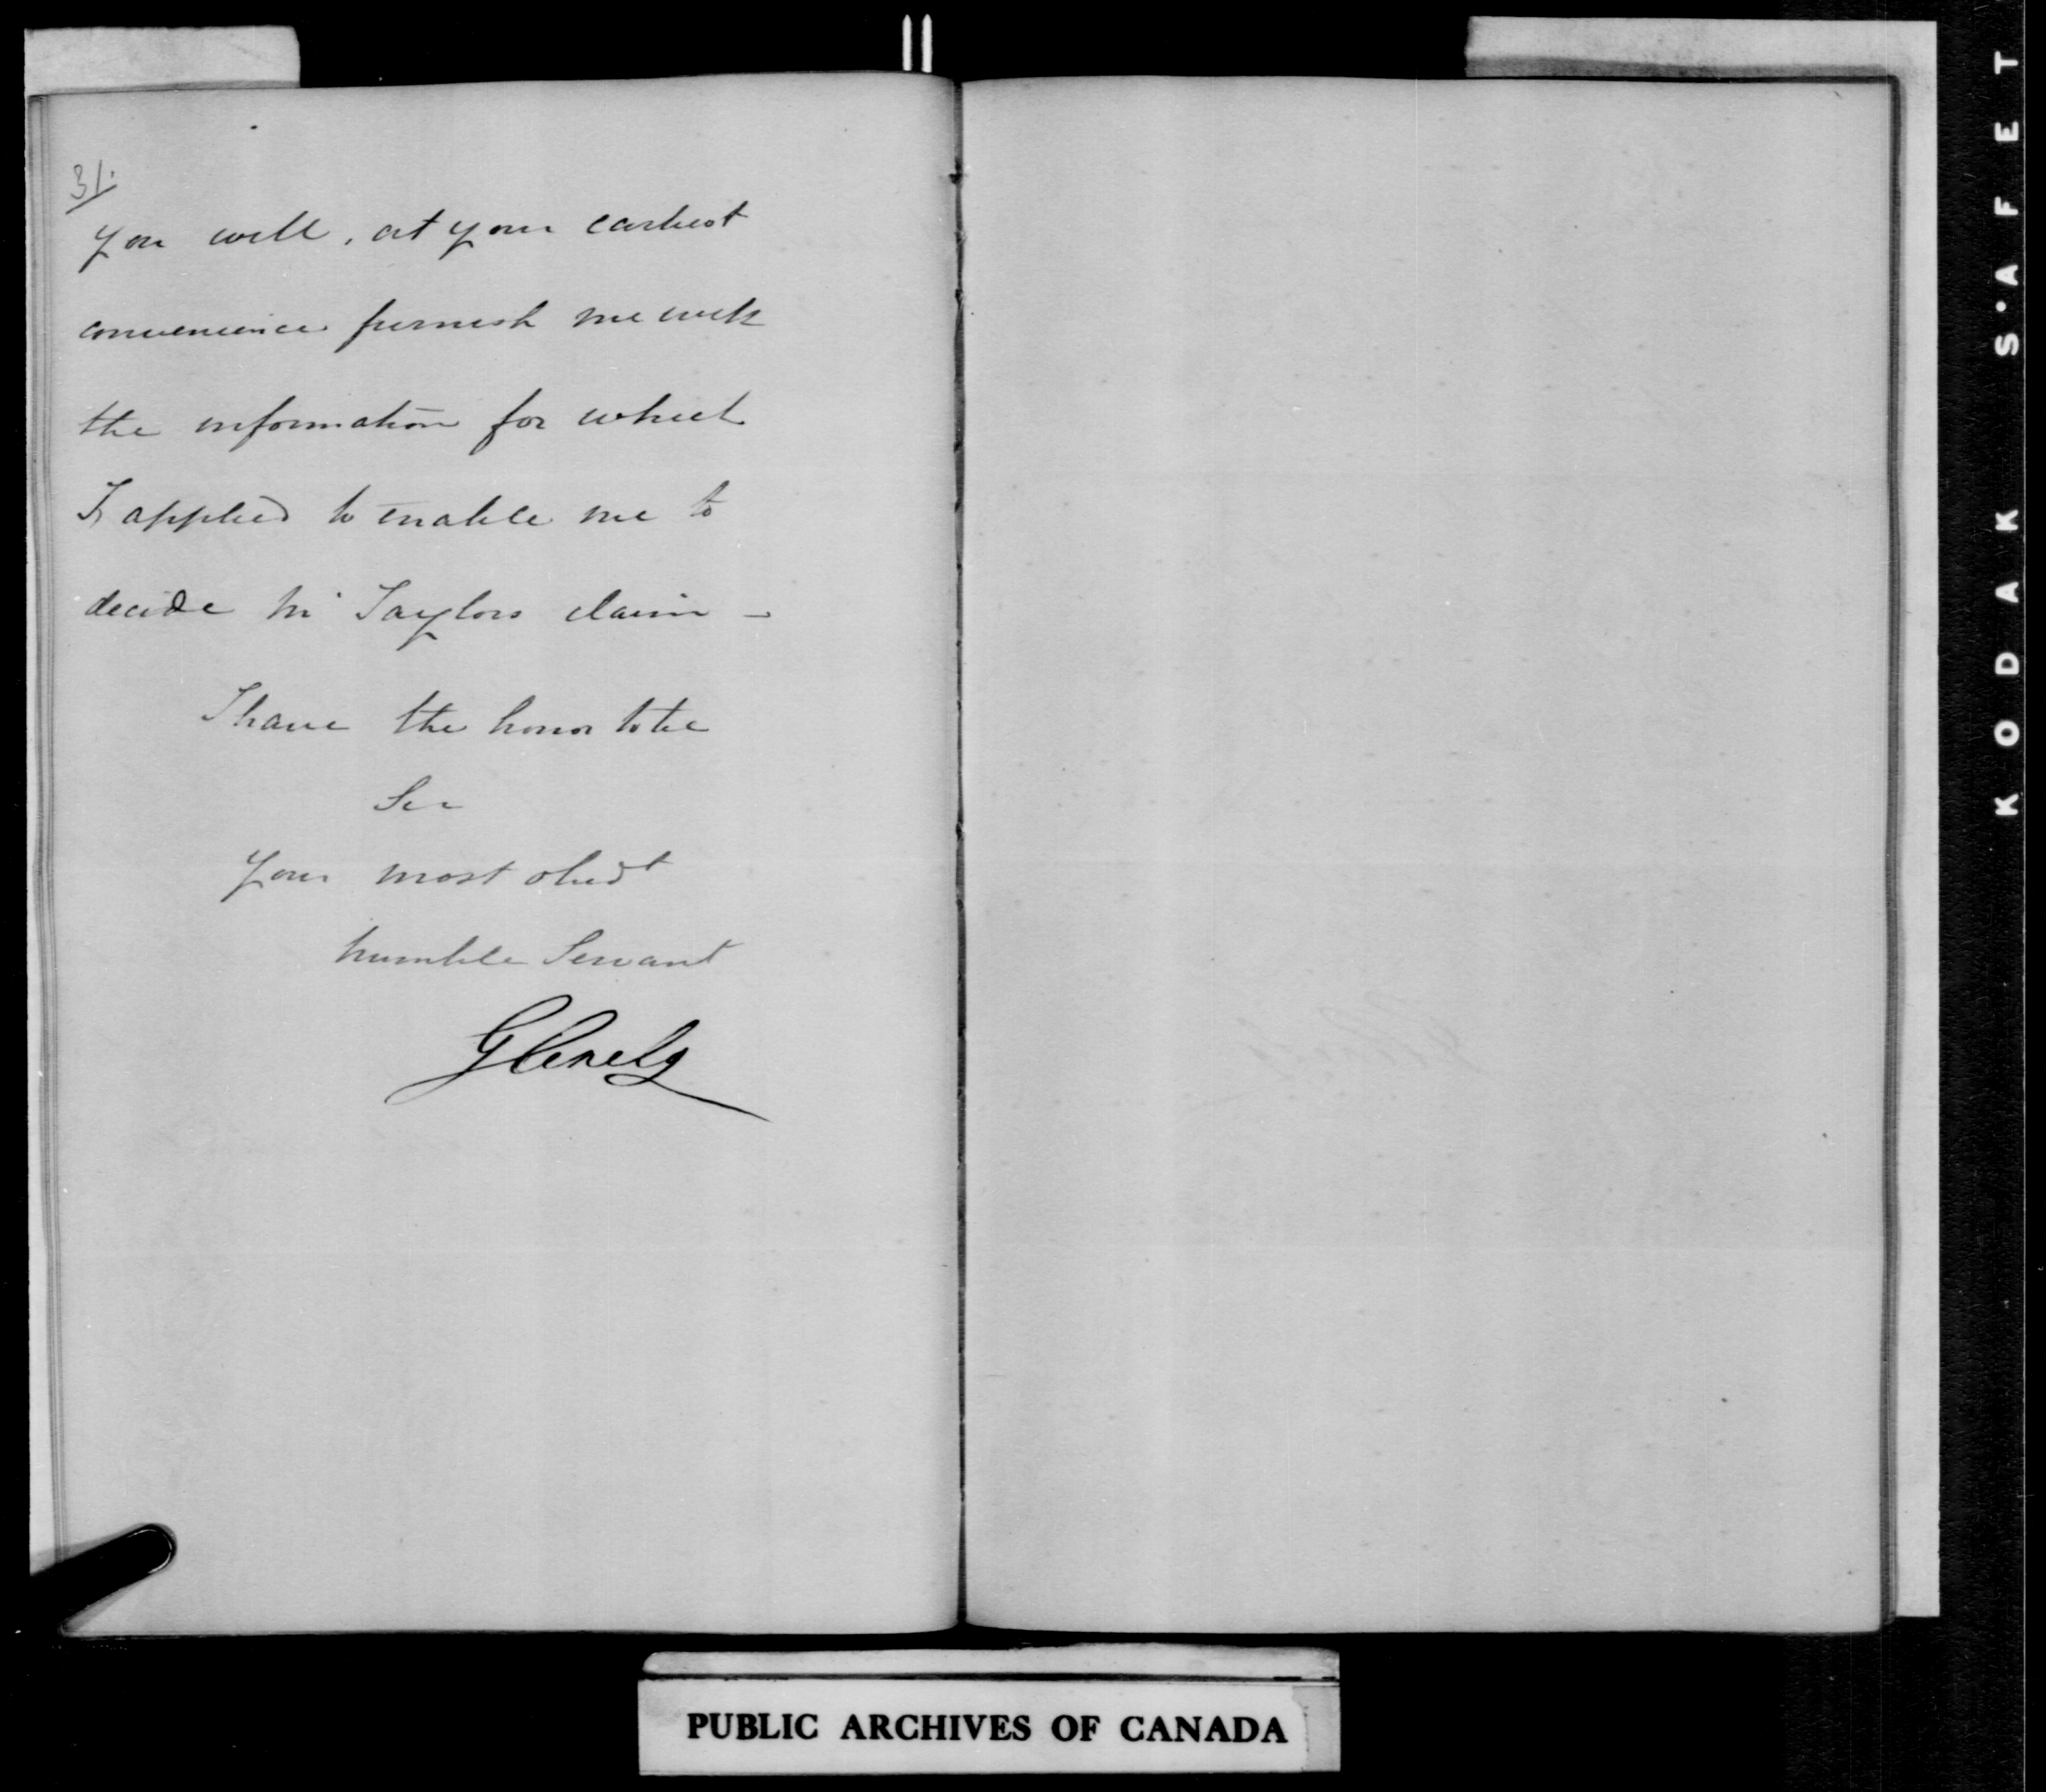 31.
you will, at your earliest
convenience furnish me with
the information for which
I applied to enable me to
decide Mr Taylors claim –
I have the honor to be
Sir
Your most obedt
humble Servant
Glenelg
PUBLIC ARCHIVES OF CANADA
KODAK S'AFETY